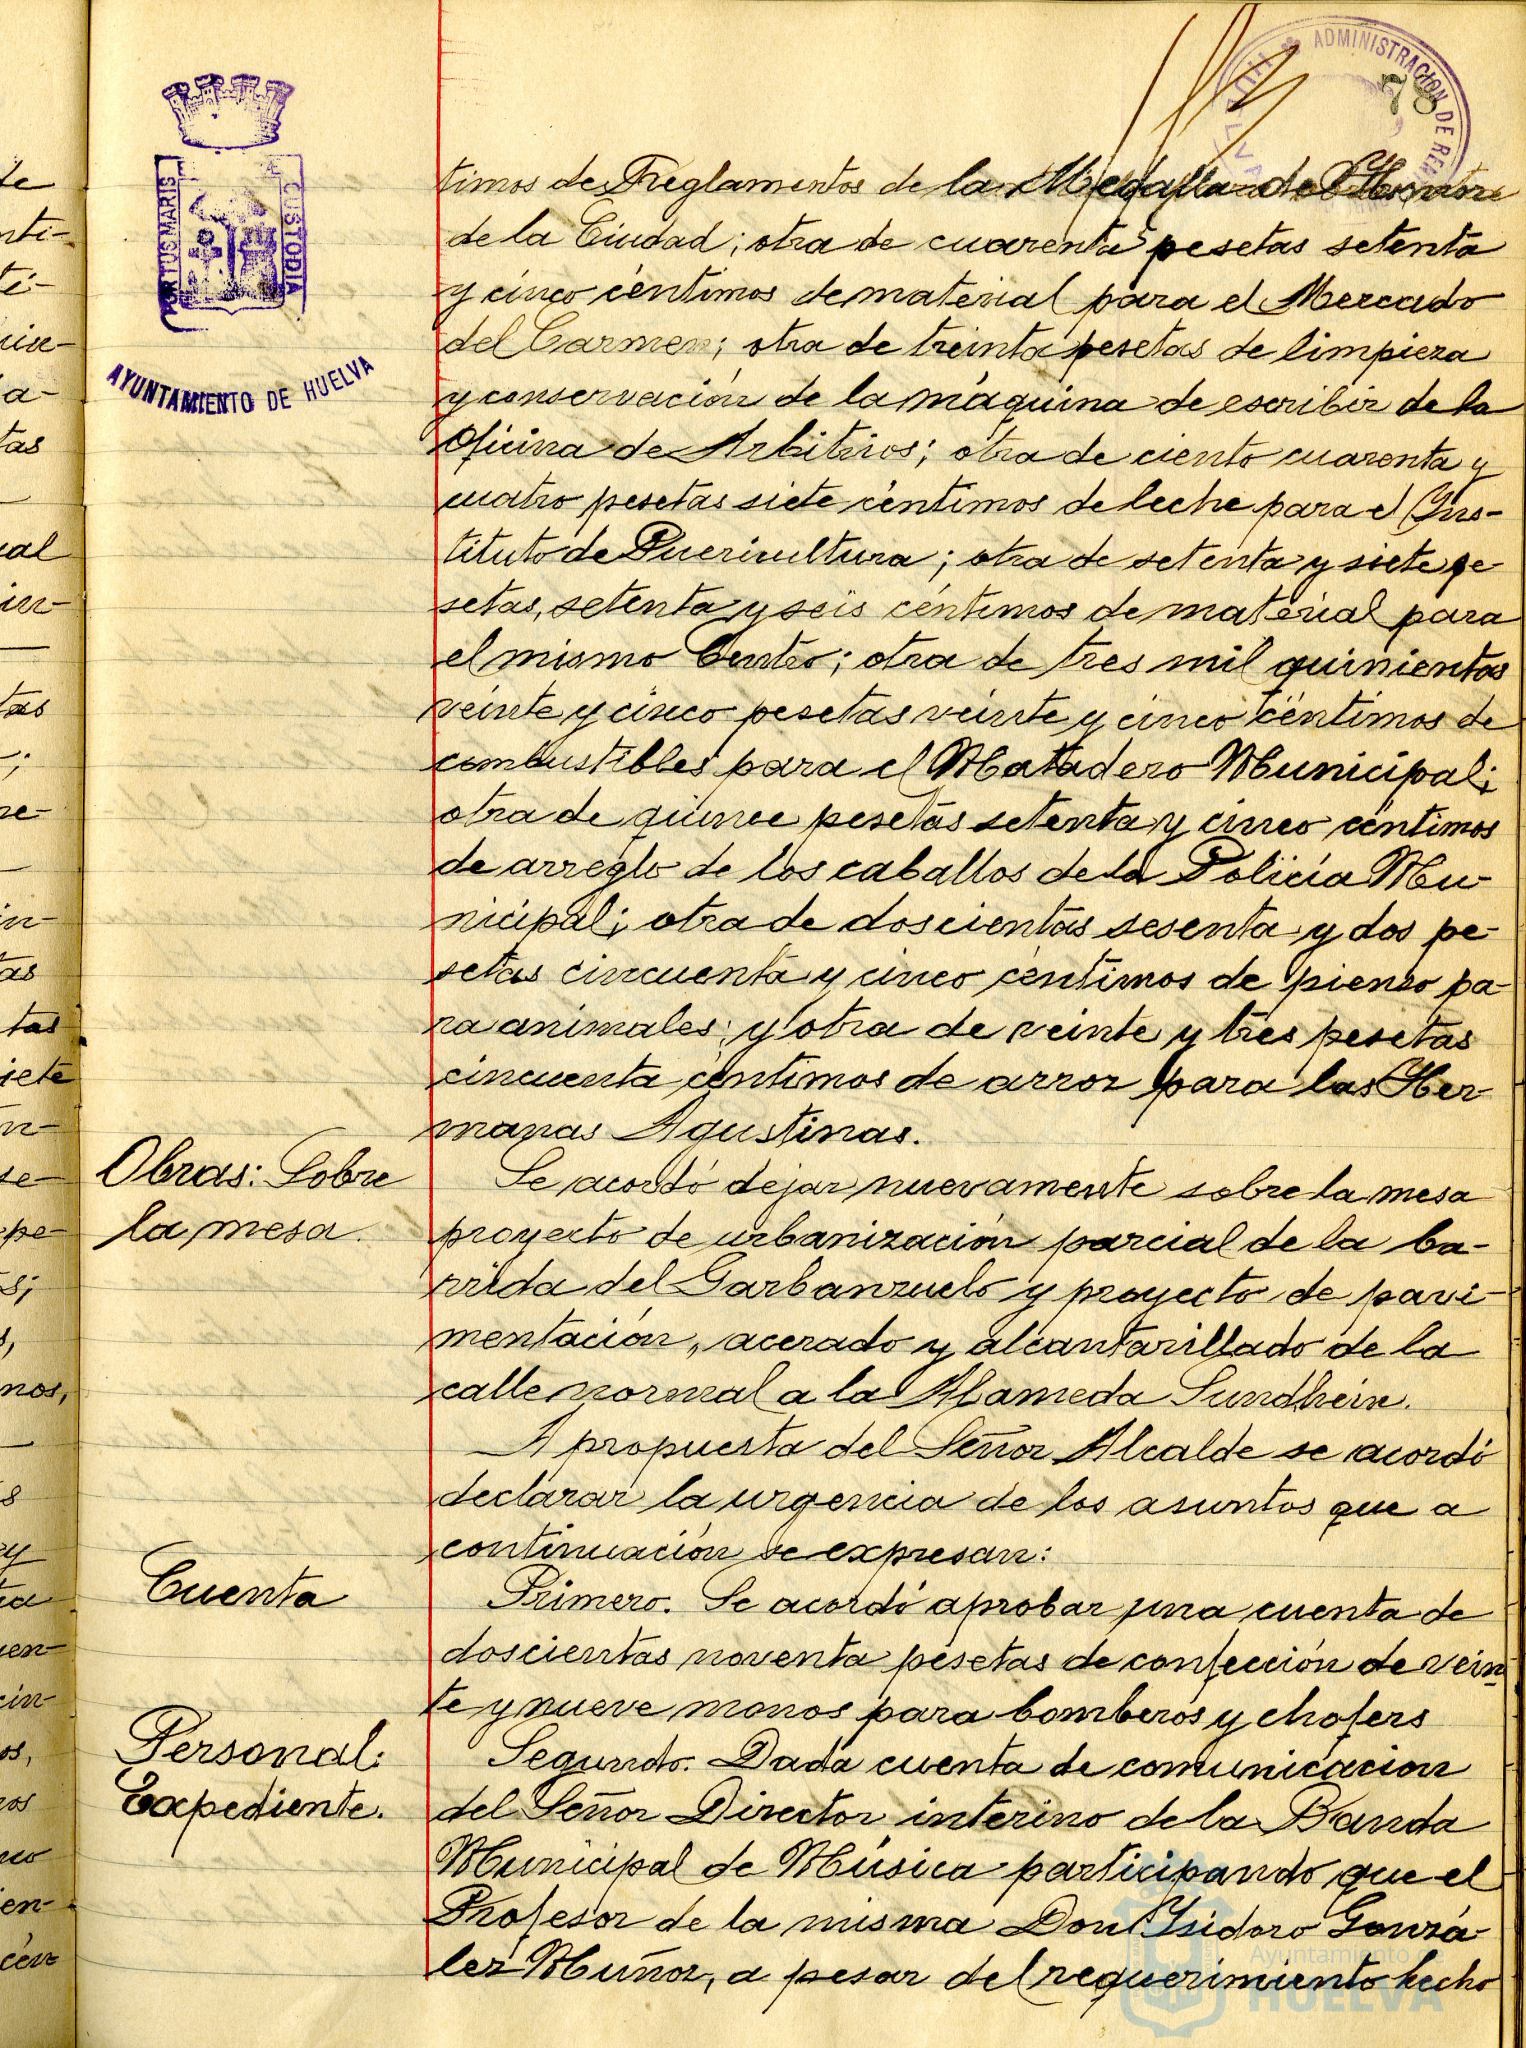 ADMINISTRACION DE REN
HUELVA
78
PORTUS MARIS
CUSTODIA
AYUNTAMIENTO DE HUELVA
timos de Reglamentos de la Medalla de
de la Ciudad; otra de cuarenta pesetas setenta
y cinco céntimos de material para el Mercado
del Carmen; otra de treinta pesetas de limpieza
y conservación de la máquina de escribir de la
Oficina de Arbitrios; otra de ciento cuarenta y
cuatro pesetas siete céntimos de leche para el Ins-
tituto de Puericultura; otra de setenta y siete pe-
setas, setenta y seis céntimos de material para
el mismo Centro; otra de tres mil quinientas
veinte y cinco pesetas veinte y cinco céntimos de
combustibles para el Matadero Municipal;
otra de quince pesetas setenta y cinco céntimos
de arreglo de los caballos de la Policía Mu-
nicipal; otra de doscientas sesenta y dos pe-
setas cincuenta y cinco céntimos de pienso pa-
ra animales; y otra de veinte y tres pesetas
cincuenta céntimos de arroz para las Her-
manas Agustinas.
Obras: Sobre
la mesa.
Se acordó dejar nuevamente sobre la mesa
proyecto de urbanización parcial de la ba-
rrida del Garbanzuelo y proyecto de pavi-
mentación, acerado y alcantarillado de la
calle normal a la Alameda Sundheim.
A propuesta del Señor Alcalde se acordó
declarar la urgencia de los asuntos que a
continuación se expresan:
Cuenta
Primero. Se acordó aprobar una cuenta de
doscientas noventa pesetas de confección de vein
te y nueve monos para bomberos y chofers
Personal:
Expediente.
Segundo. Dada cuenta de comunicacion
del Señor Director interino de la Banda
Municipal de Música participando que el
Profesor de la misma Don Isidoro Gonzá-
lez Muñoz, a pesar del requerimiento hecho
Ayuntamiento de
HUELVA